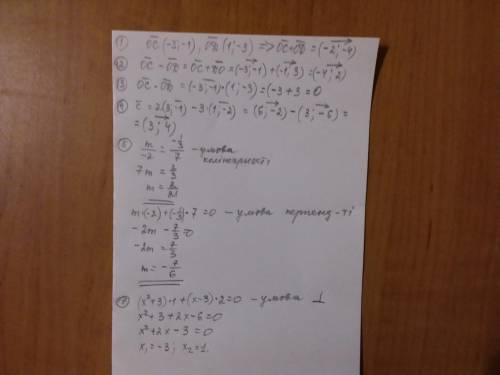 ① \overline{OC} (-3;-1), \overline{OD} (1;-3) => \overline{OC}+\overline{OD} = (-2;-4)
② \overline{OC} - \overline{OD} = \overline{OC} + \overline{DO} = (-3;-1) + (-1;3) = (-4;2)
③ \overline{OC} · \overline{OD} = (-3;-1)·(1;-3) = (-3+3 = 0
④ \overline{c} = 2(3;-1) - 3·(1;-2) = (6;-2) - (3;-6) =
= (3;4)
⑤ m/-2 = -1/3 / 7 - умова колінеарності
7m = 2/3
m = 2/21
m·(-2) + (-1/3)·7 = 0 - умова перпенд-ті
- 2m - 7/3 = 0
-2m = 7/3
m = - 7/6
(x²+3)·1 + (x-3)·2 = 0 - умова ⊥
x² + 3 + 2x - 6 = 0
x² + 2x - 3 = 0
x₁ = -3; x₂ = 1.